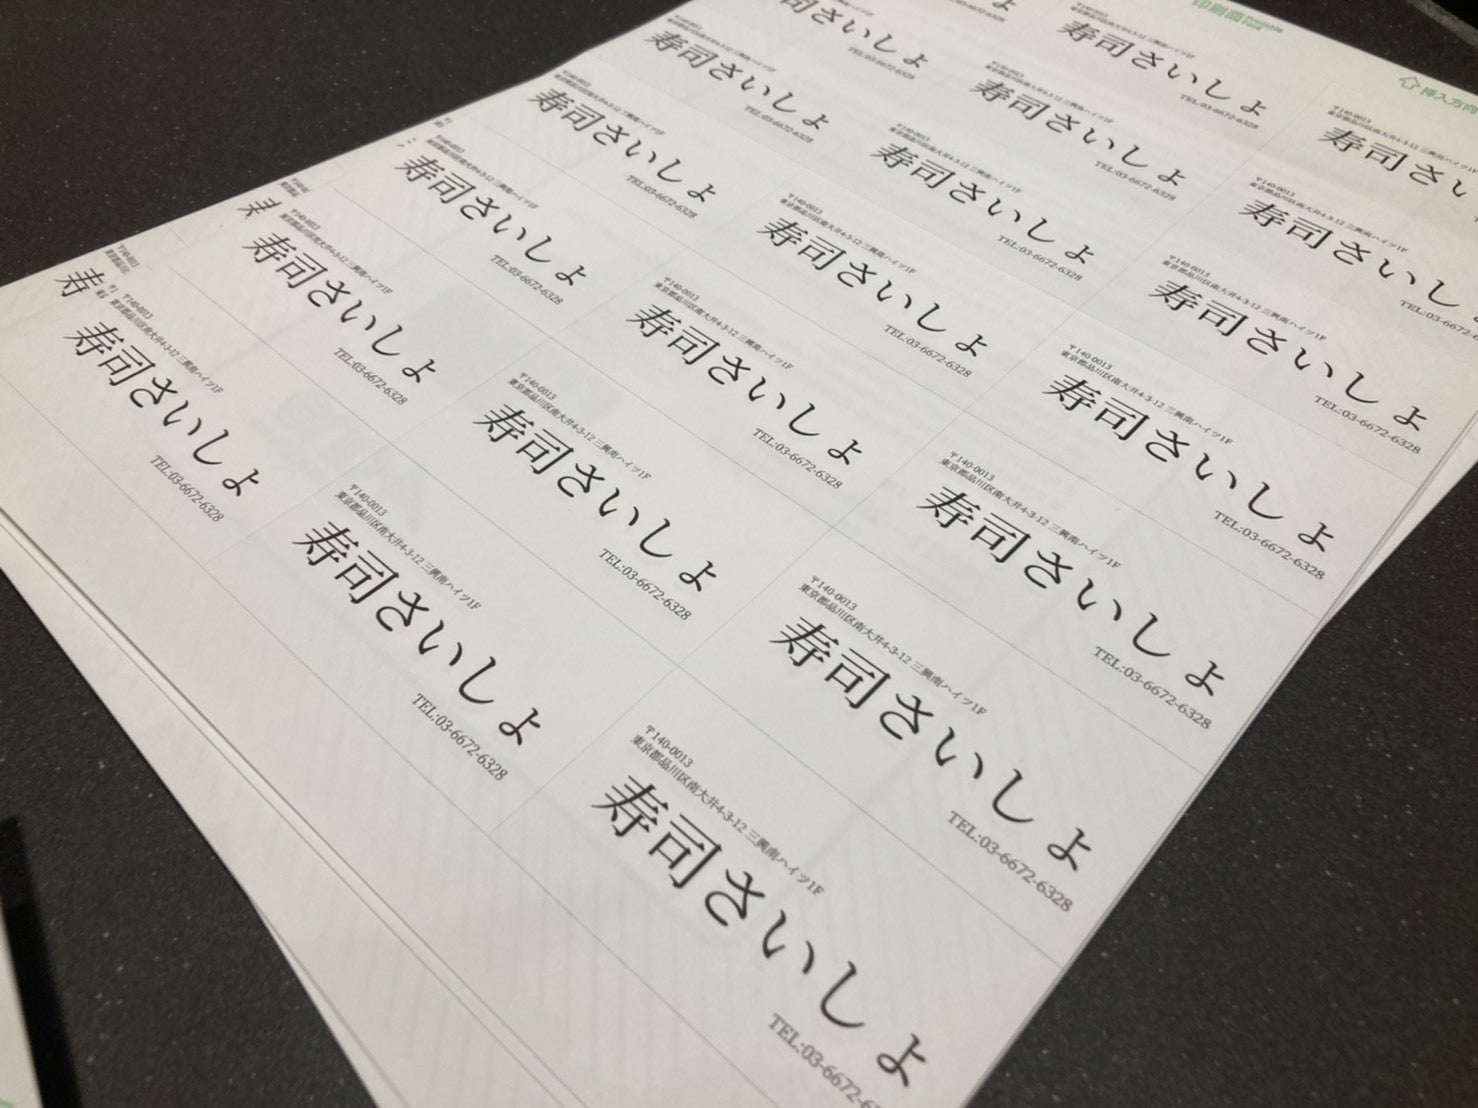 印刷面
Printable Face
挿入方向
司さいしょ
TEL:03-6672-6328
寿司さいしょ
TEL:03-6672-6328
〒140-0013
東京都品川区南大井4-3-12 三興南ハイツ1F
寿司さい
東京都品川区南大井4-3-12 三興南ハイツ1F
寿司さいしょ
TEL:03-6672-6328
〒140-0013
東京都品川区南大井4-3-12 三興南ハイツ1F
寿司さいしょ
TEL:03-6672-6328
〒140-0013
東京都品川区南大井4-3-12 三興南ハイツ1F
寿司さいし
TEL:03-6672-6
〒140-0013
東京都品川区南大井4-3-12 三興南ハイツ1F
寿司さいしょ
TEL:03-6672-6328
〒140-0013
東京都品川区南大井4-3-12 三興南ハイツ1F
寿司さいしょ
TEL:03-6672-6328
〒140-0013
東京都品川区南大井4-3-12 三興南ハイツ1F
寿司さいしょ
TEL:03-6672-6328
〒140-0013
東京都品川区南大井4-3-12 三興南ハイツ1F
寿司さいしょ
TEL:03-6672-6328
〒140-0013
東京都品川区南大井4-3-12 三興南ハイツ1F
寿司さいしょ
TEL:03-6672-6328
〒140-0013
東京都品川区南大井4-3-12 三興南ハイツ1F
寿司さいしょ
TEL:03-6672-6328
〒140-0013
東京都品川区南大井4-3-12 三興南ハイツ1F
寿司さいしょ
TEL:03-6672-6328
〒140-0013
東京都品川区南大井4-3-12 三興南ハイツ1F
寿司さいしょ
TEL:03-6672-6328
〒140-0013
東京都品川区南大井4-3-12 三興南ハイツ1F
寿司さいしょ
TEL:03-6672-6328
寿
〒140-0013
東京都品川区南大井4-3-12 三興南ハイツ1F
寿司さいしょ
TEL:03-6672-6328
〒140-0013
東京都品川区南大井4-3-12 三興南ハイツ1F
寿司さいしょ
TEL:03-6672-6328
〒140-0013
東京都品川区南大井4-3-12 三興南ハイツ1F
寿司さいしょ
TEL:03-6672-6328
〒140-0013
東京都品川区南大井4-3-12 三興南ハイツ1F
寿司さいしょ
TEL:03-6672-6328